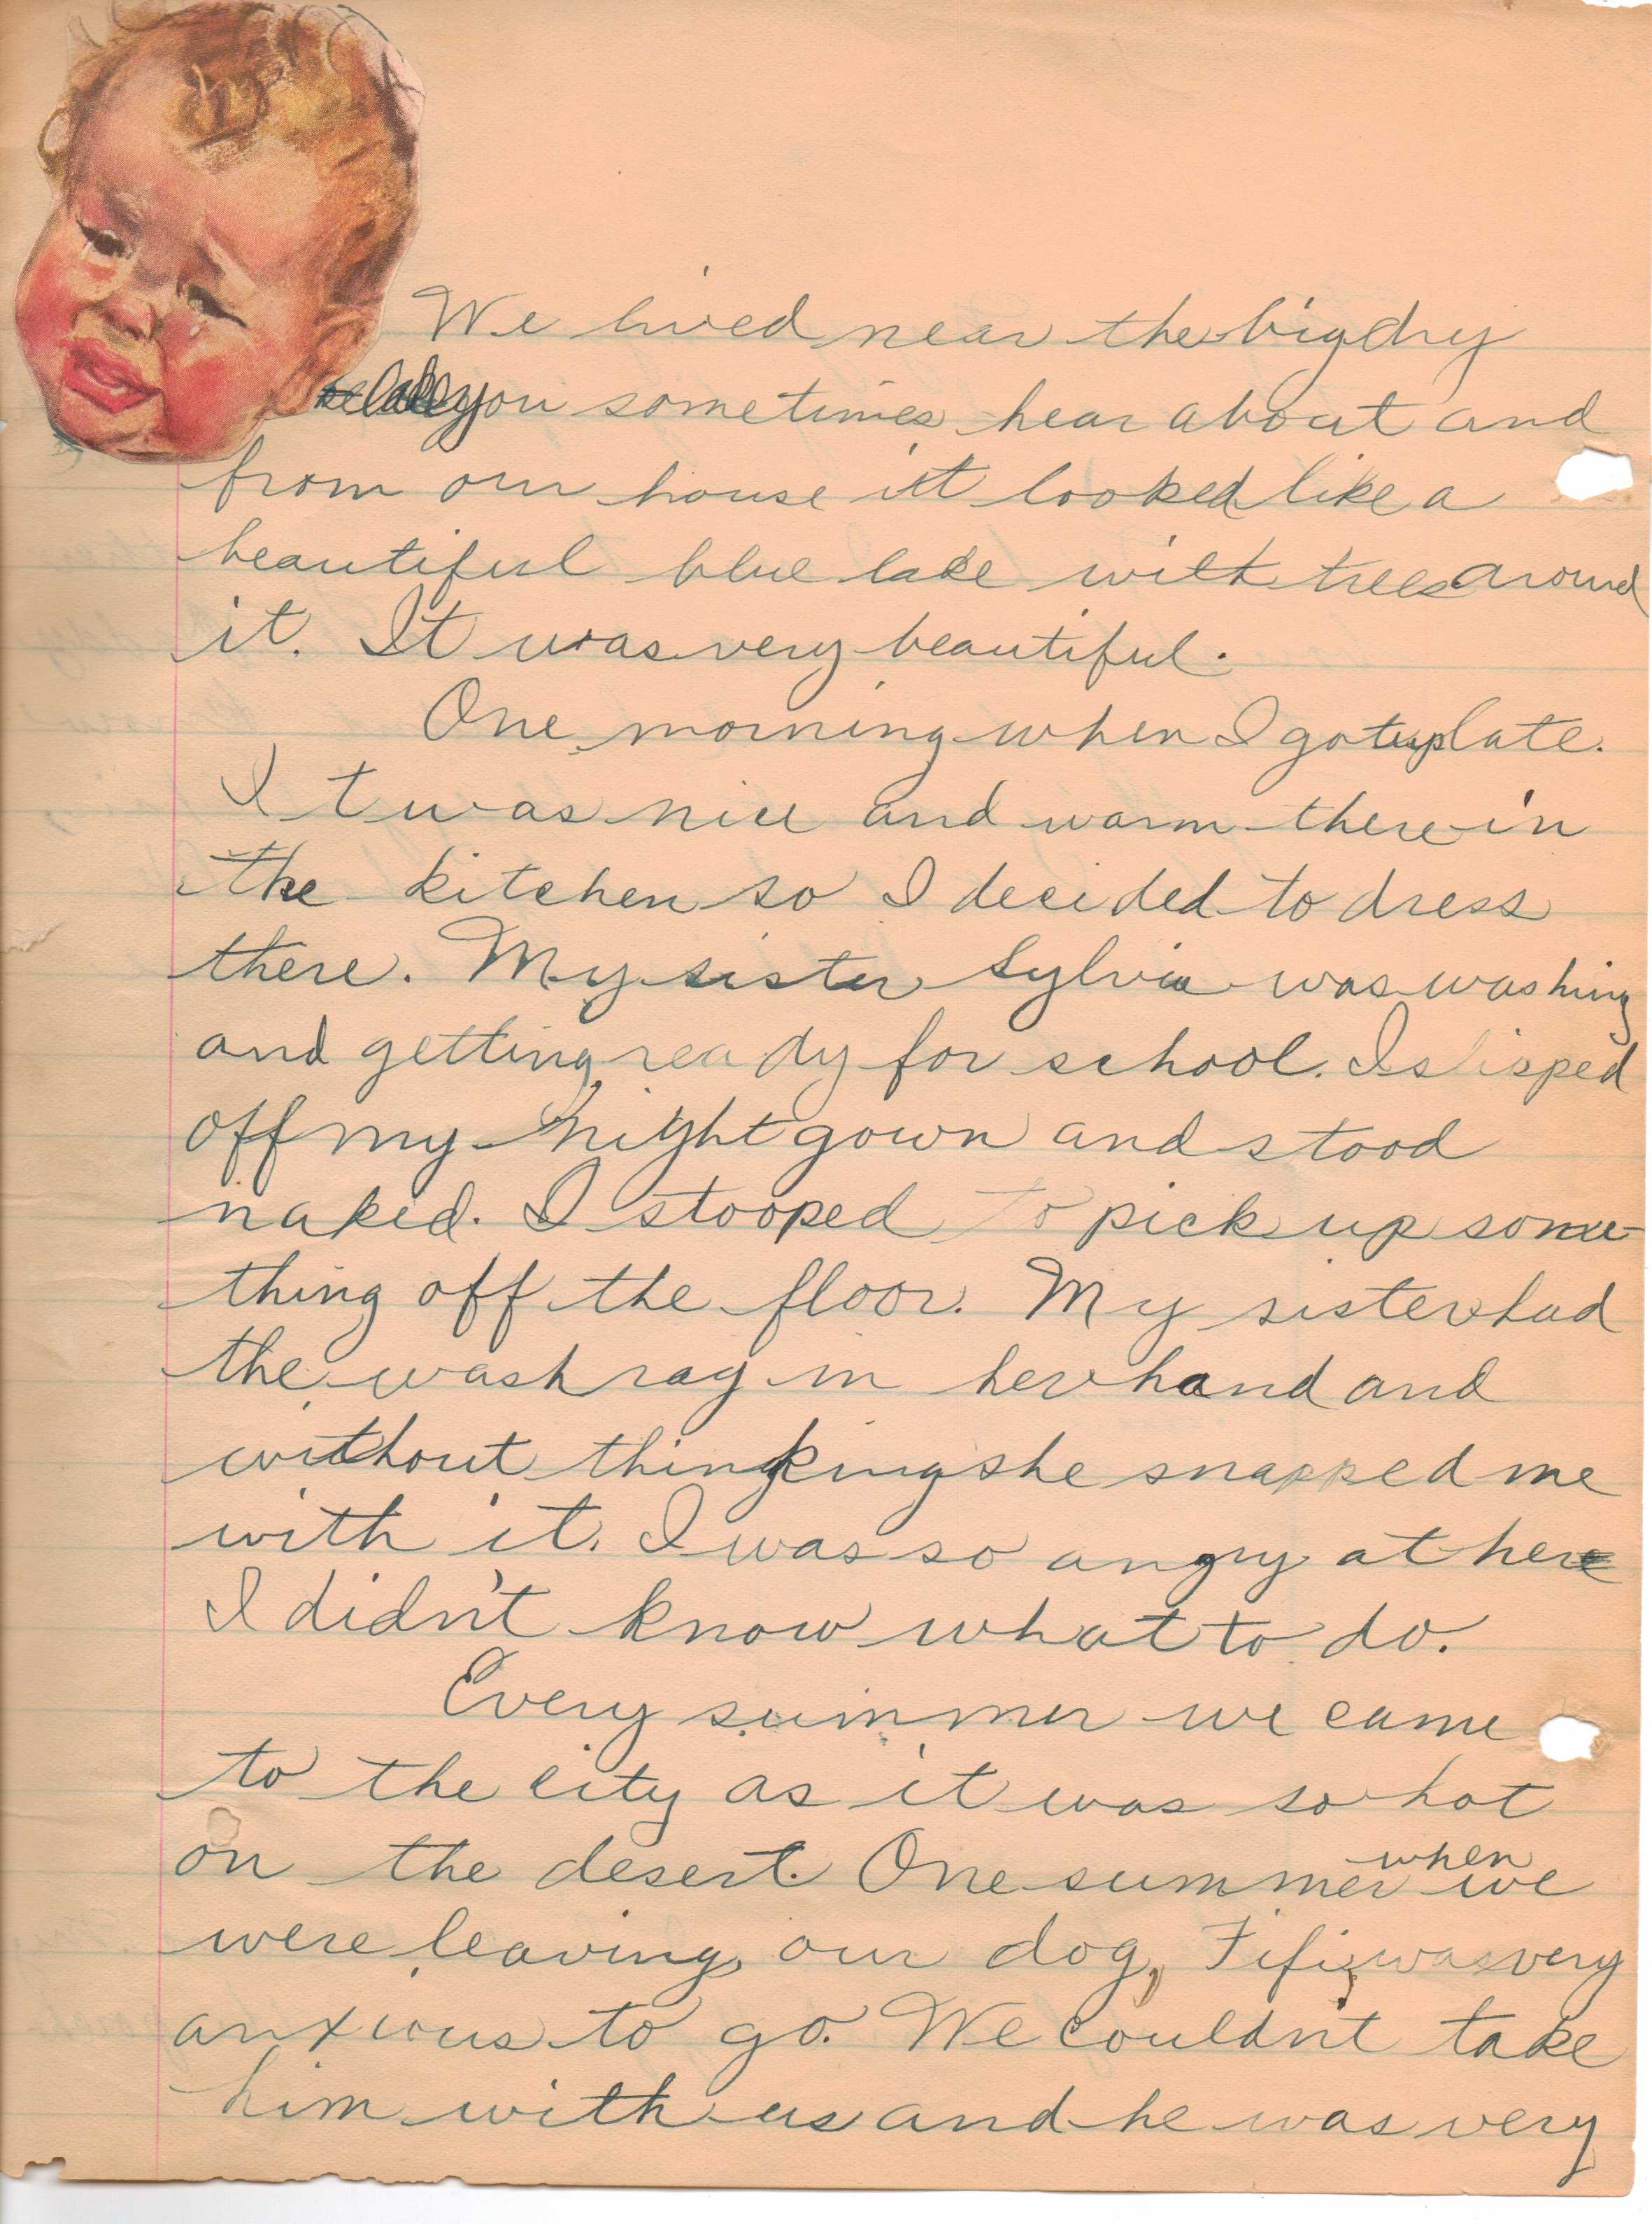 We lived near the big dry
lake you sometimes hear about and
from our house it looked like a
beautiful blue lake with trees around
it. It was very beautiful.
One morning when I got up late.
It was nice and warm there in
the kitchen so I decided to dress
there. My sister Sylvia was washing
and getting ready for school. I slisped
off my night gown and stood
naked. I stooped to pick up some-
thing off the floor. My sister had
the wash rag in her hand and
without thinking she snapped me
with it. I was so angry at her
I didn't know what to do.
Every summer we came
to the city as it was so hot
on the desert. One summer when we
were leaving, our dog, Fifi, was very
anxious to go. We couldn't take
him with us and he was very